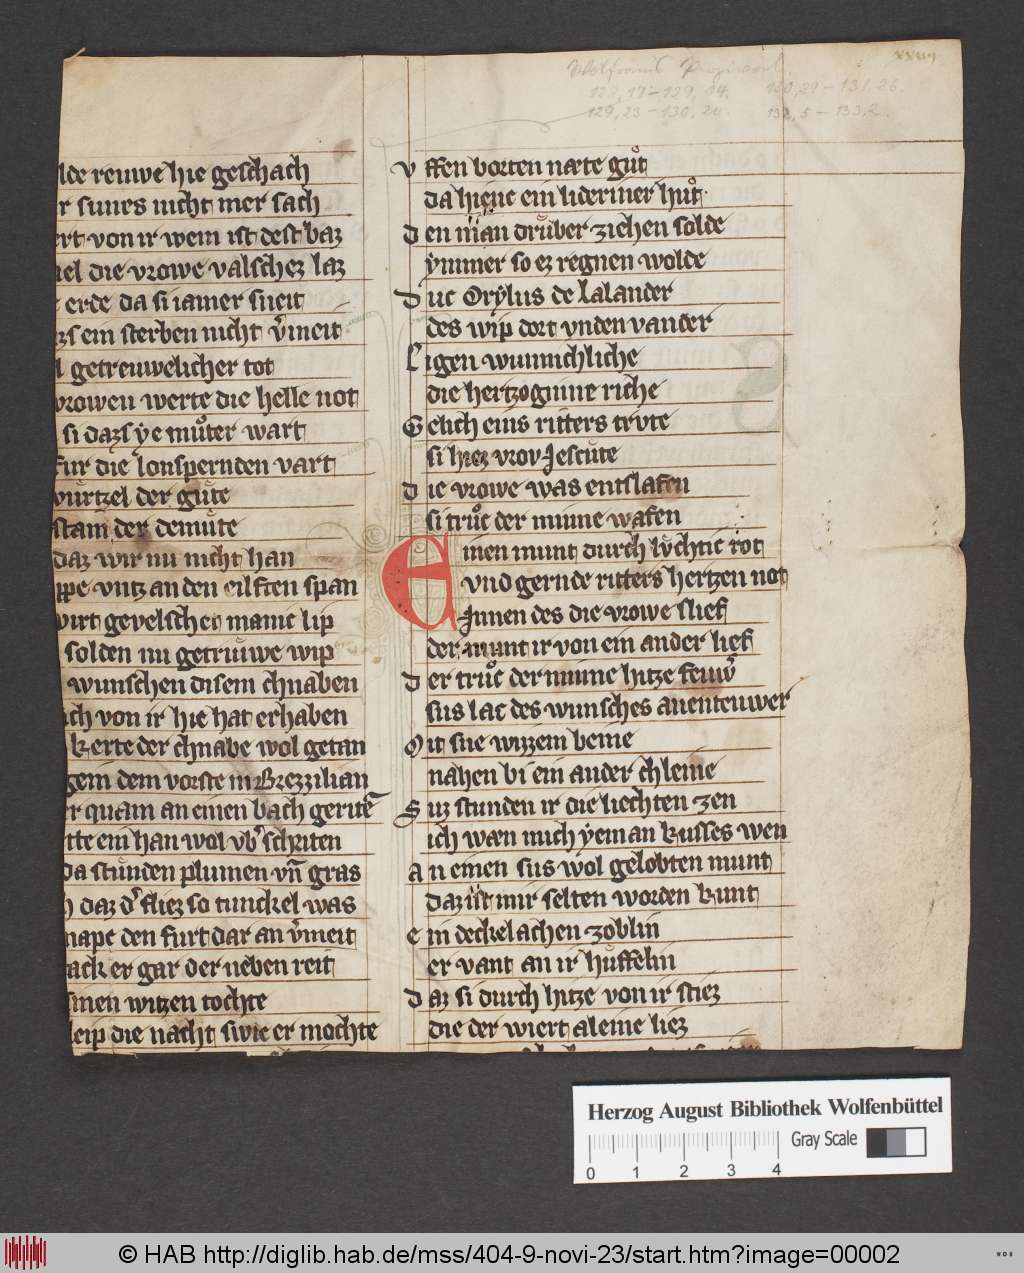 Wolframs Parzival.
128,17–129,04.
129,23–130,24.
130,29–131,26.
132,5–133,2.
lde reuwe hie geschach
r sunes nicht mer sach
ert von ir wem ist dest baz
el die vrowe valschez laz
erde da si iamer sneit
sem sterben nicht v̓meit
l getreuwelicher tot
vrowen werte die helle not
si dazs ye muͦter wart
fur die lonspernden vart
wuͤrtzel der guͤte
stam der demuͤte
daz wir nu nicht han
ppe vntz an den eilften span
wirt gevelschet manic lip
solden nu getruwe wip
wunschen disem chnaben
ich von ir hie hat erhaben
kerte der chnabe wol getan
gein dem vorste in Brezzilian
r quam an einen bach geriten
tte ein han wol vb̓ schriten
da stuͤnden plumen vn̄ gras
daz d̓ fliez so tunckel was
nape den furt dar an v̓meit
tack er gar der neben reit
sinen witzen tochte
leip die nacht swie er mochte
V ffen borten næte guͦt
da hienc ein lideriner huͦt
D en man druͤber ziehen solde
ymmer so ez regnen wolde
D uc Orylus de Lalander
des wip dort vnden vander
L igen wunnichliche
die hertzoginne riche
G elich eins ritters trvte
si hiez vrov Jescuͤte
D ie vrowe was entslafen
si truͦc der minne wafen
E inen munt durch lvchtic rot
vnd gernde ritters hertzen not
Innen des die vrowe slief
der munt ir von ein ander lief
D er truͦc der minne hitze feuw̓
sus lac des wunsches auenteuwer
O it sne wizzem beine
nahen bi ein ander chleine
S uz stunden ir die liechten zen
ich wæn mich yeman kusses wen
A n einen sus wol gelobten munt
daz ist mir selten worden kunt
E in deckelachen zoblin
er vant an ir huͤffelin
D az si durch hitze von ir stiez
die der wiert aleine liez
Herzog August Bibliothek Wolfenbüttel
Gray Scale
0 1 2 3 4
© HAB http://diglib.hab.de/mss/404-9-novi-23/start.htm?image=00002
WDB